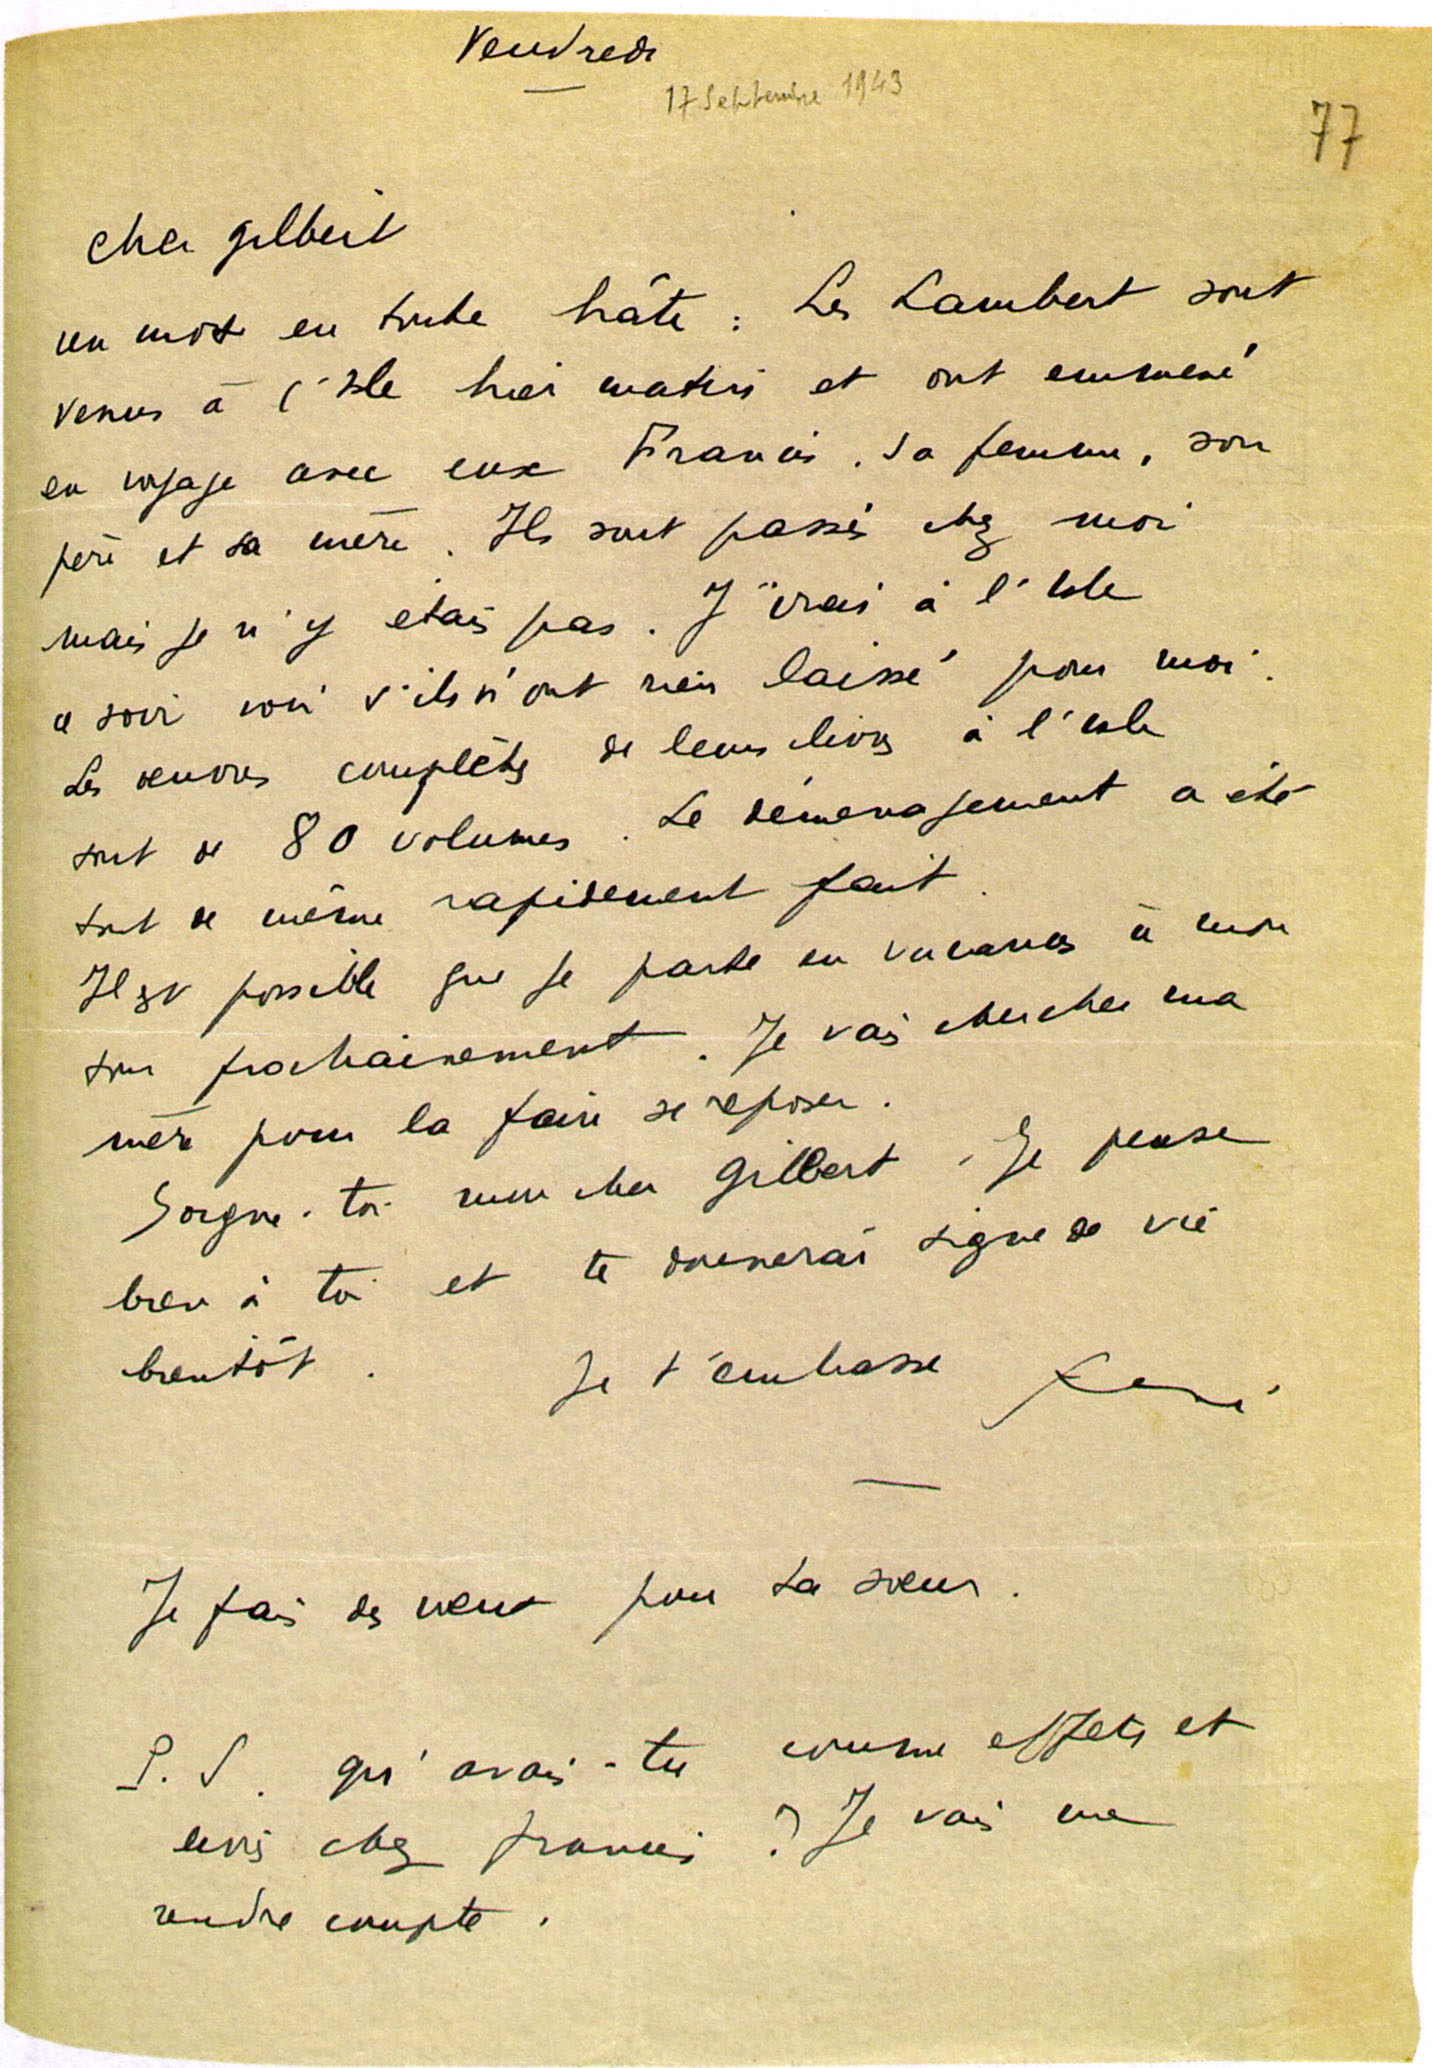 Vendredi
17 Septembre 1943
77
Cher Gilbert
un mot en toute hâte : Les Lambert sont
venus à l'Isle hier matin et ont emmené
en voyage avec eux Francis, sa femme, son
père et sa mère. Ils sont passés chez moi
mais je n'y étais pas. J'irai à l'Isle
ce soir voir s'ils n'ont rien laissé pour moi.
Les œuvres complètes de leurs livres à l'Isle
sont de 80 volumes. Le déménagement a été
tout de même rapidement fait.
Il est possible que je parte en vacances à mon
tour prochainement. Je vais chercher ma
mère pour la faire se reposer.
Soigne-toi mon cher Gilbert. Je pense
bien à toi et te donnerai signe de vie
bientôt. Je t'embrasse René
Je fais des vœux pour ta sœur.
P.S. qu'avais-tu comme effets et
livres chez Francis ? Je vais me
rendre compte.